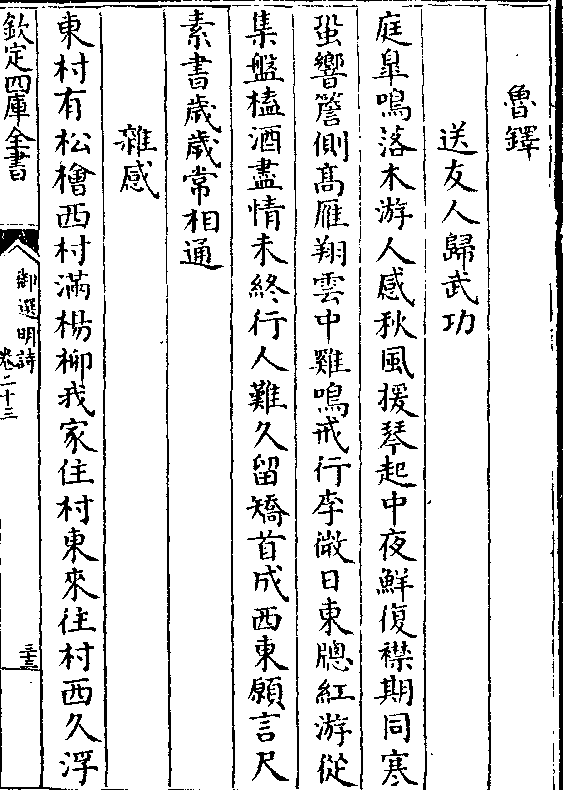 魯鐸
送友人歸武功
庭臯鳴落木游人感秋風援琴起中夜鮮復襟期同寒
蛩響簷側髙雁翔雲中雞鳴戒行李微日東牕紅游從
集盤榼酒盡情未終行人難久留矯首成西東願言尺
素書歲歲常相通
雜感
東村有松檜西村滿楊柳我家住村東來往村西久浮
欽定四庫全書
御選明詩
卷二十三
三十三